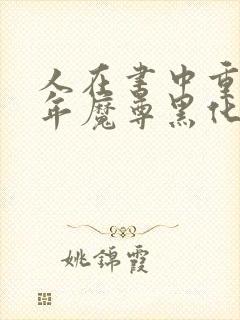 人在书中重
年魔尊黑化
姚锦霞